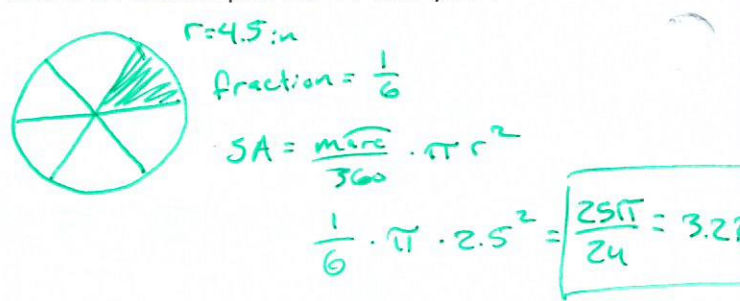 r=4.5in
fraction = 1/6
SA = marc/360 · π r²
1/6 · π · 2.5² = 25π/24 = 3.27